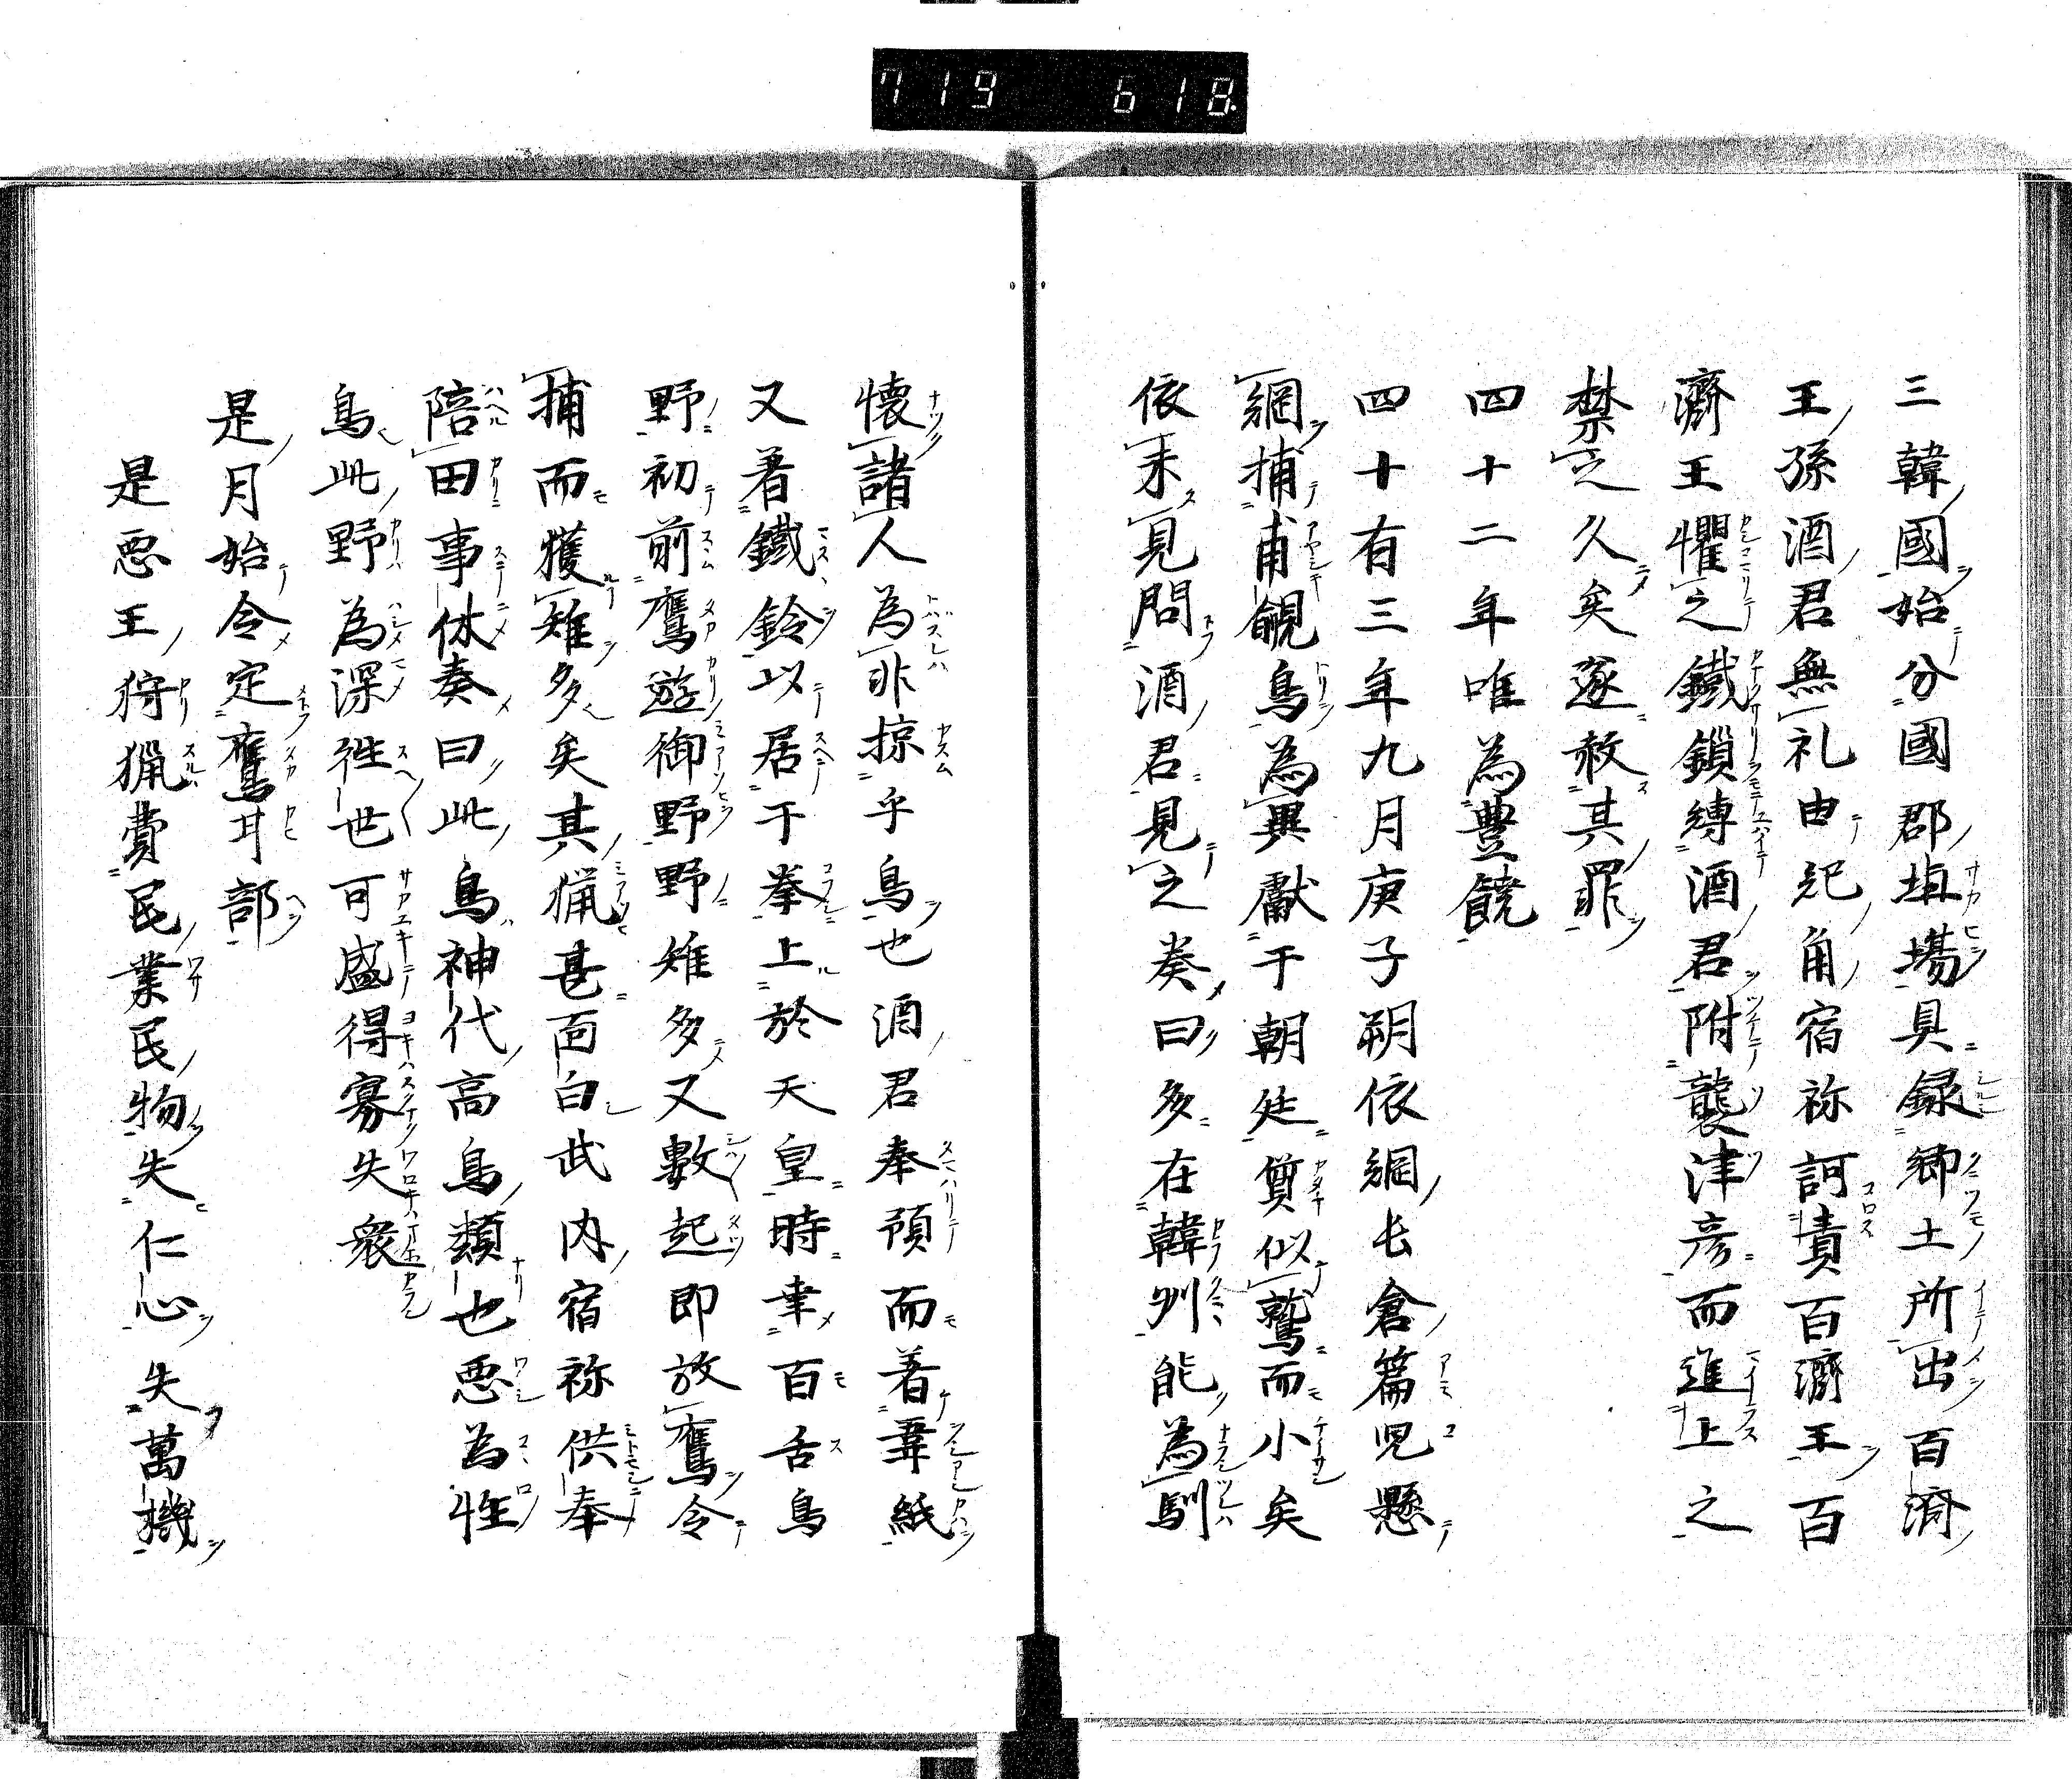 719 618
三韓國始分國郡垣場具録郷土所出百済
王孫酒君無礼由紀角宿祢訶責百濟王百
濟王懼之鐵鎖縛酒君附襲津彦而進上之
禁之久矣遂赦其罪
四十二年唯為豊饒
四十有三年九月庚子朔依網長倉篇児懸
網捕甫覦鳥為異獻于朝廷貿似鷲而小矣
依未見問酒君見之奏曰多在韓州能為馴
懐諸人為非掠乎鳥也酒君奉預而著葦紙
又着鐵鈴以居于拳上於天皇時幸百舌鳥
野初前鷹遊御野野雉多又數起即放鷹令
捕而獲雉多矣其猟甚面白武内宿祢供奉
陪田事休奏曰此鳥神代高鳥類也悪為性
鳥此野為深徃世可盛得寡失衆
是月始令定鷹甘部
是悪王狩猟費民業民物失仁心失萬機